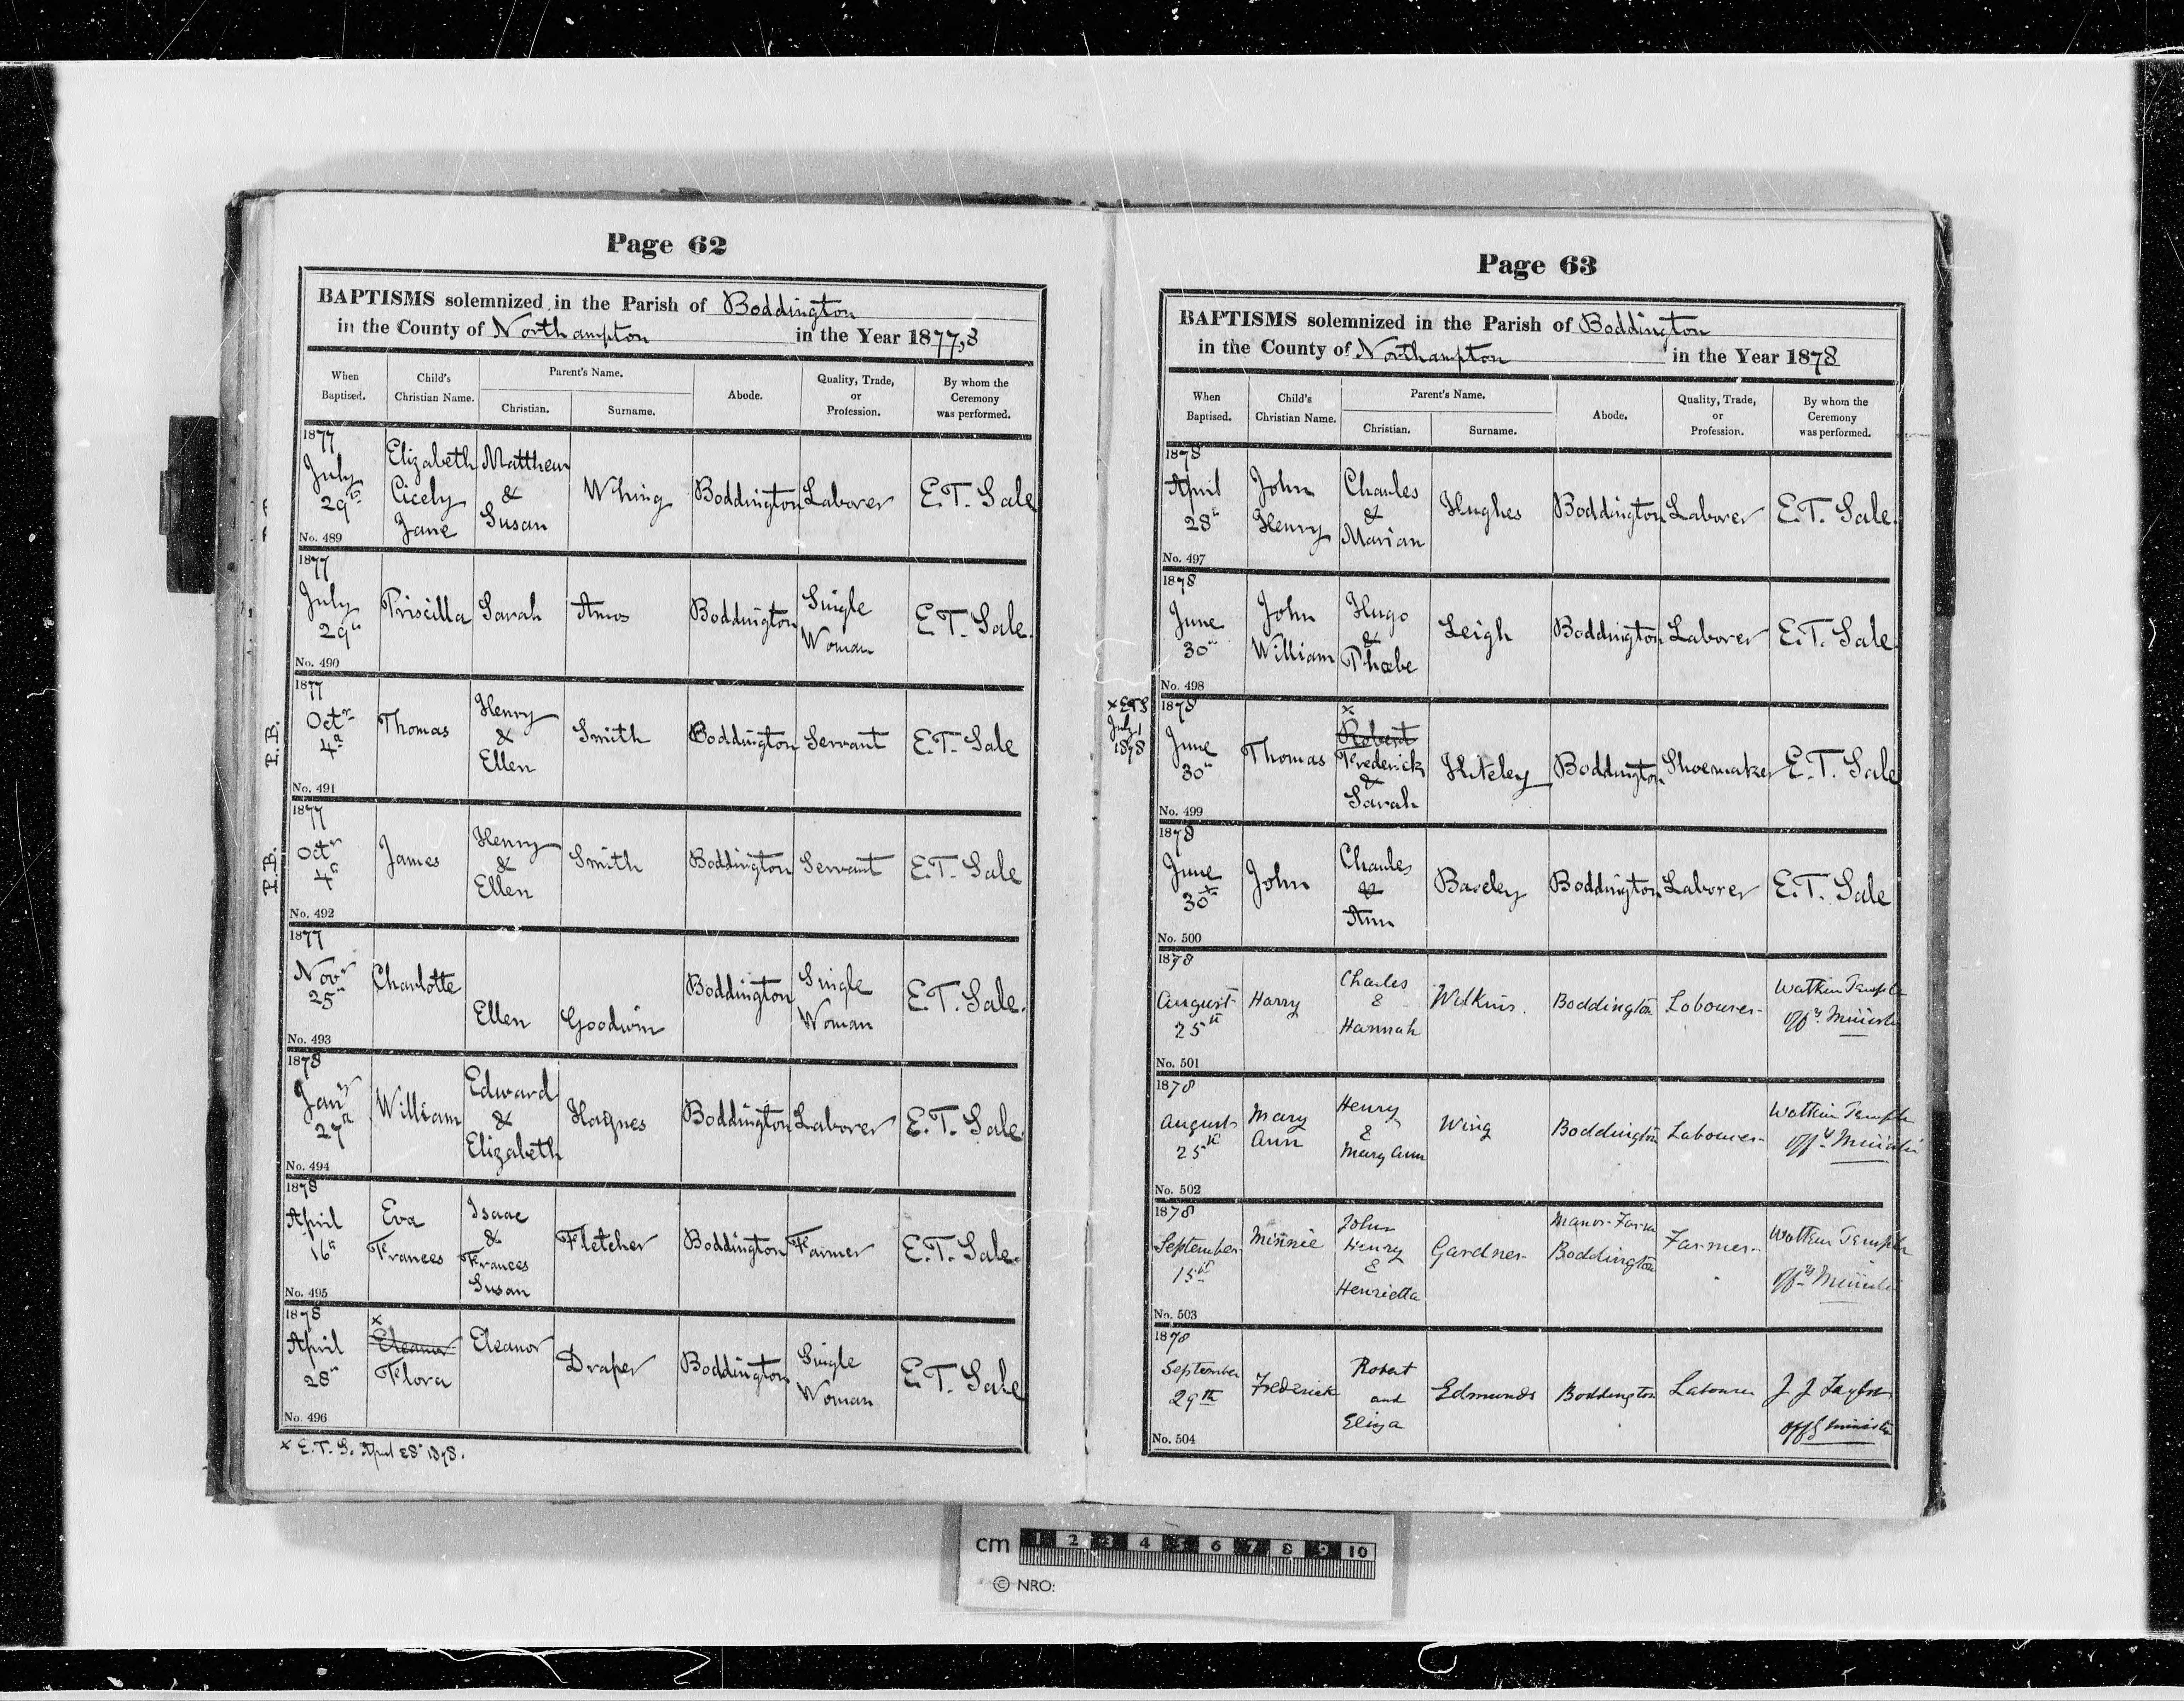 Page 62
BAPTISMS solemnized in the Parish of Boddington
in the County of Northampton in the Year 1877,8
When Baptised. Child's Christian Name. Parent's Name. Christian. Surname. Abode. Quality, Trade, or Profession. By whom the Ceremony was performed.
1877
July 29th Elizabeth Cicely Jane Matthew & Susan Whing Boddington Laborer E.T. Sale
No. 489
1877
July 29th Priscilla Sarah Amos Boddington Single Woman E.T. Sale.
No. 490
1877
P.B. Octr 4th Thomas Henry & Ellen Smith Boddington Servant E.T. Sale
No. 491
1877
P.B. Octr 4th James Henry & Ellen Smith Boddington Servant E.T. Sale
No. 492
1877
Novr 25th Charlotte Ellen Goodwin Boddington Single Woman E.T. Sale.
No. 493
1878
Jany 27th William Edward & Elizabeth Haynes Boddington Laborer E.T. Sale.
No. 494
1878
April 16th Eva Frances Isaac & Frances Susan Fletcher Boddington Farmer E.T. Sale.
No. 495
1878
April 28th x Eleanor Flora Eleanor Draper Boddington Single Woman E.T. Sale
No. 496
x E.T.S. April 28th 1878.
Page 63
BAPTISMS solemnized in the Parish of Boddington
in the County of Northampton in the Year 1878
When Baptised. Child's Christian Name. Parent's Name. Christian. Surname. Abode. Quality, Trade, or Profession. By whom the Ceremony was performed.
1878
April 28th John Henry Charles & Marian Hughes Boddington Laborer E.T. Sale.
No. 497
1878
June 30th John William Hugo & Phœbe Leigh Boddington Laborer E.T. Sale.
No. 498
x ETS July 1 1878
1878
June 30th Thomas x Robert Frederick & Sarah Kiteley Boddington Shoemaker E.T. Sale
No. 499
1878
June 30th John Charles & Ann Baseley Boddington Laborer E.T. Sale
No. 500
1878
August 25th Harry Charles & Hannah Wilkins. Boddington Labourer Watkin Temple Offg. Minister
No. 501
1878
August 25th Mary Ann Henry & Mary Ann Wing Boddington Labourer Watkin Temple Offg Minister
No. 502
1878
September 15th Minnie John Henry & Henrietta Gardner Manor Farm Boddington Farmer Watkin Temple Offg Minister
No. 503
1878
September 29th Frederick Robert and Eliza Edmunds Boddington Labourer J J Taylor Offg minister
No. 504
cm 1 2 3 4 5 6 7 8 9 10
© NRO: